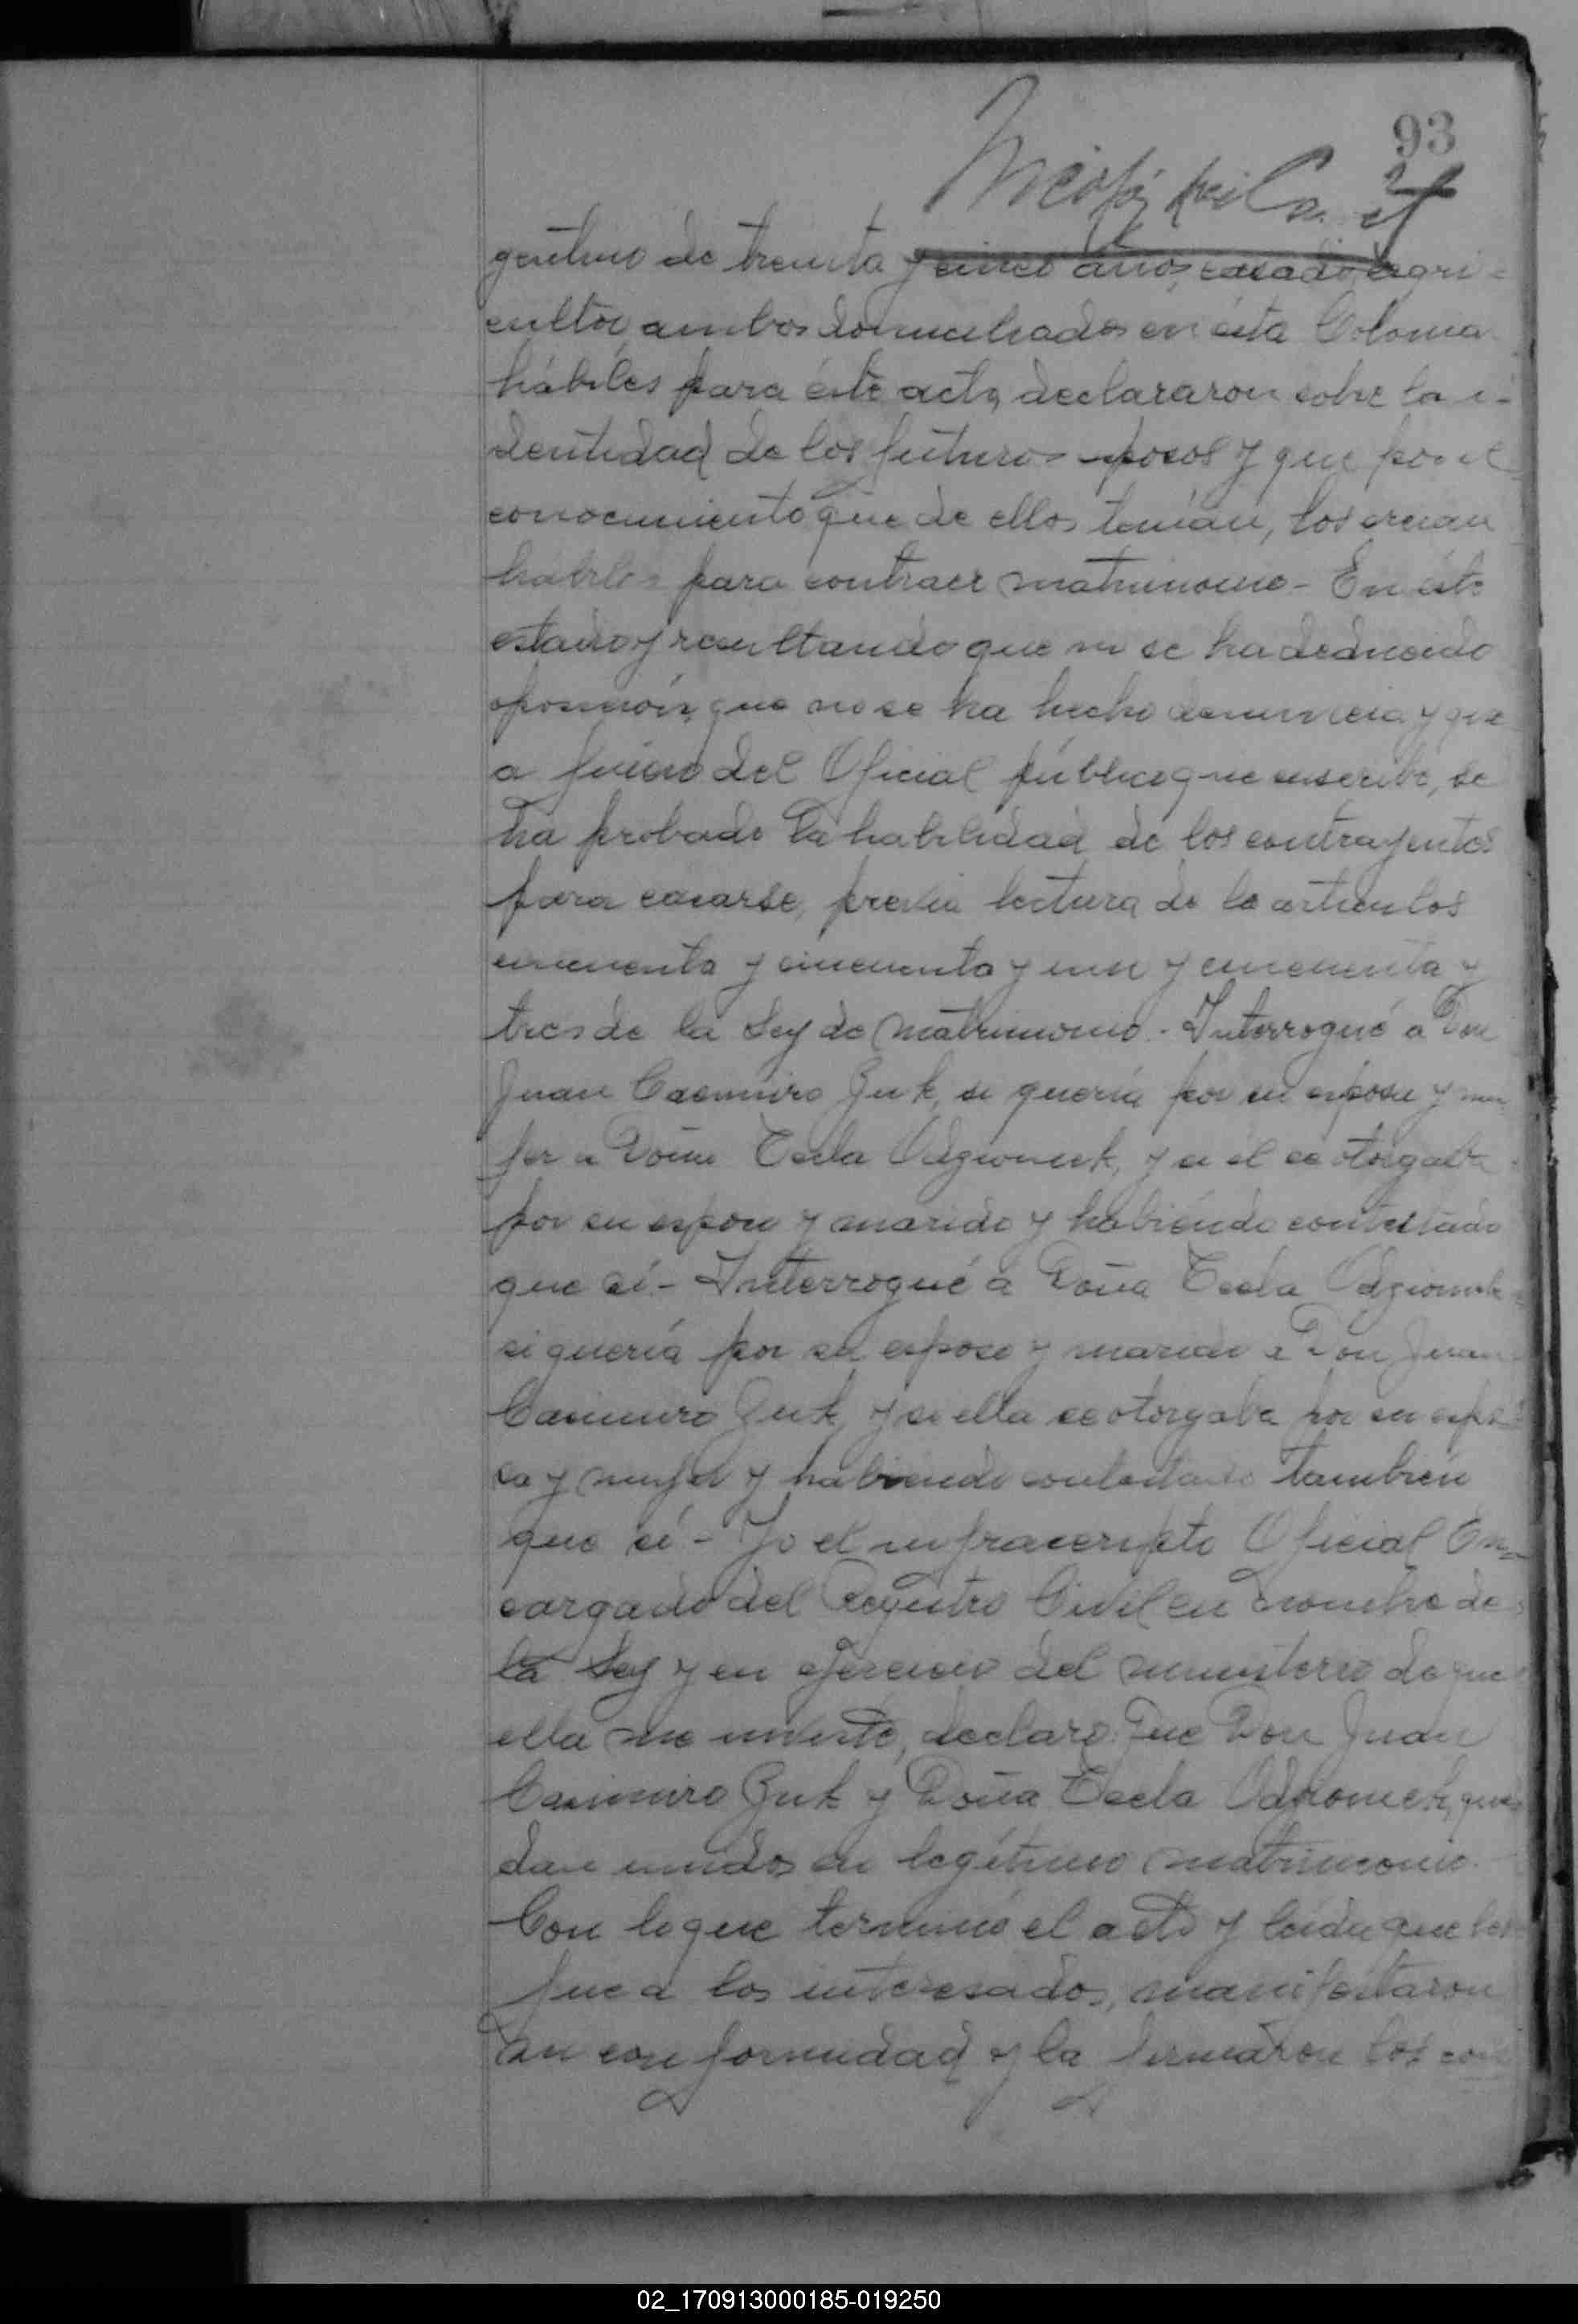 93
gentino de treinta y cinco años, casado, agri=
cultor, ambos domiciliados en ésta Colonia
hábiles para éste acto, declararon sobre la i-
dentidad de los futuros esposos y que por el
conocimiento que de ellos tenían, los creían
hábiles para contraer matrimonio - En éste
estado y resultando que no se ha deducido
oposición, que no se ha hecho denuncia y que
a juicio del Oficial público que suscribe, se
ha probado la habilidad de los contrayentes
para casarse, previa lectura de lo artículos
cincuenta y cincuenta y uno y cincuenta y
tres de la Ley de Matrimonio. - Interrogué a Don
Juan Casimiro Zuk, si quería por su esposa y mu
jer a Doña Tecla Odzionek, y si él se otorgaba
por su esposo y marido y habiendo contestado
que sí - Interrogué a Doña Tecla Odzionek
si quería por su esposo y marido a Don Juan
Casimiro Zuk y si ella se otorgaba por su espo=
sa y mujer y habiendo contestado también
que sí - Yo el infrascripto Oficial En=
cargado del Registro Civil en nombre de
la Ley y en ejercicio del ministerio de que
ella me inviste, declaro: Que Don Juan
Casimiro Zuk y Doña Tecla Odzionek, que=
dan unidos en legítimo matrimonio.
Con lo que terminó el acto y leída que les
fue a los interesados, manifestaron
su conformidad y la firmaron los con
02_170913000185-019250